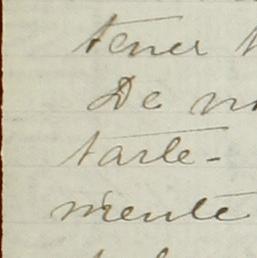 tener
De
tarle-
mente